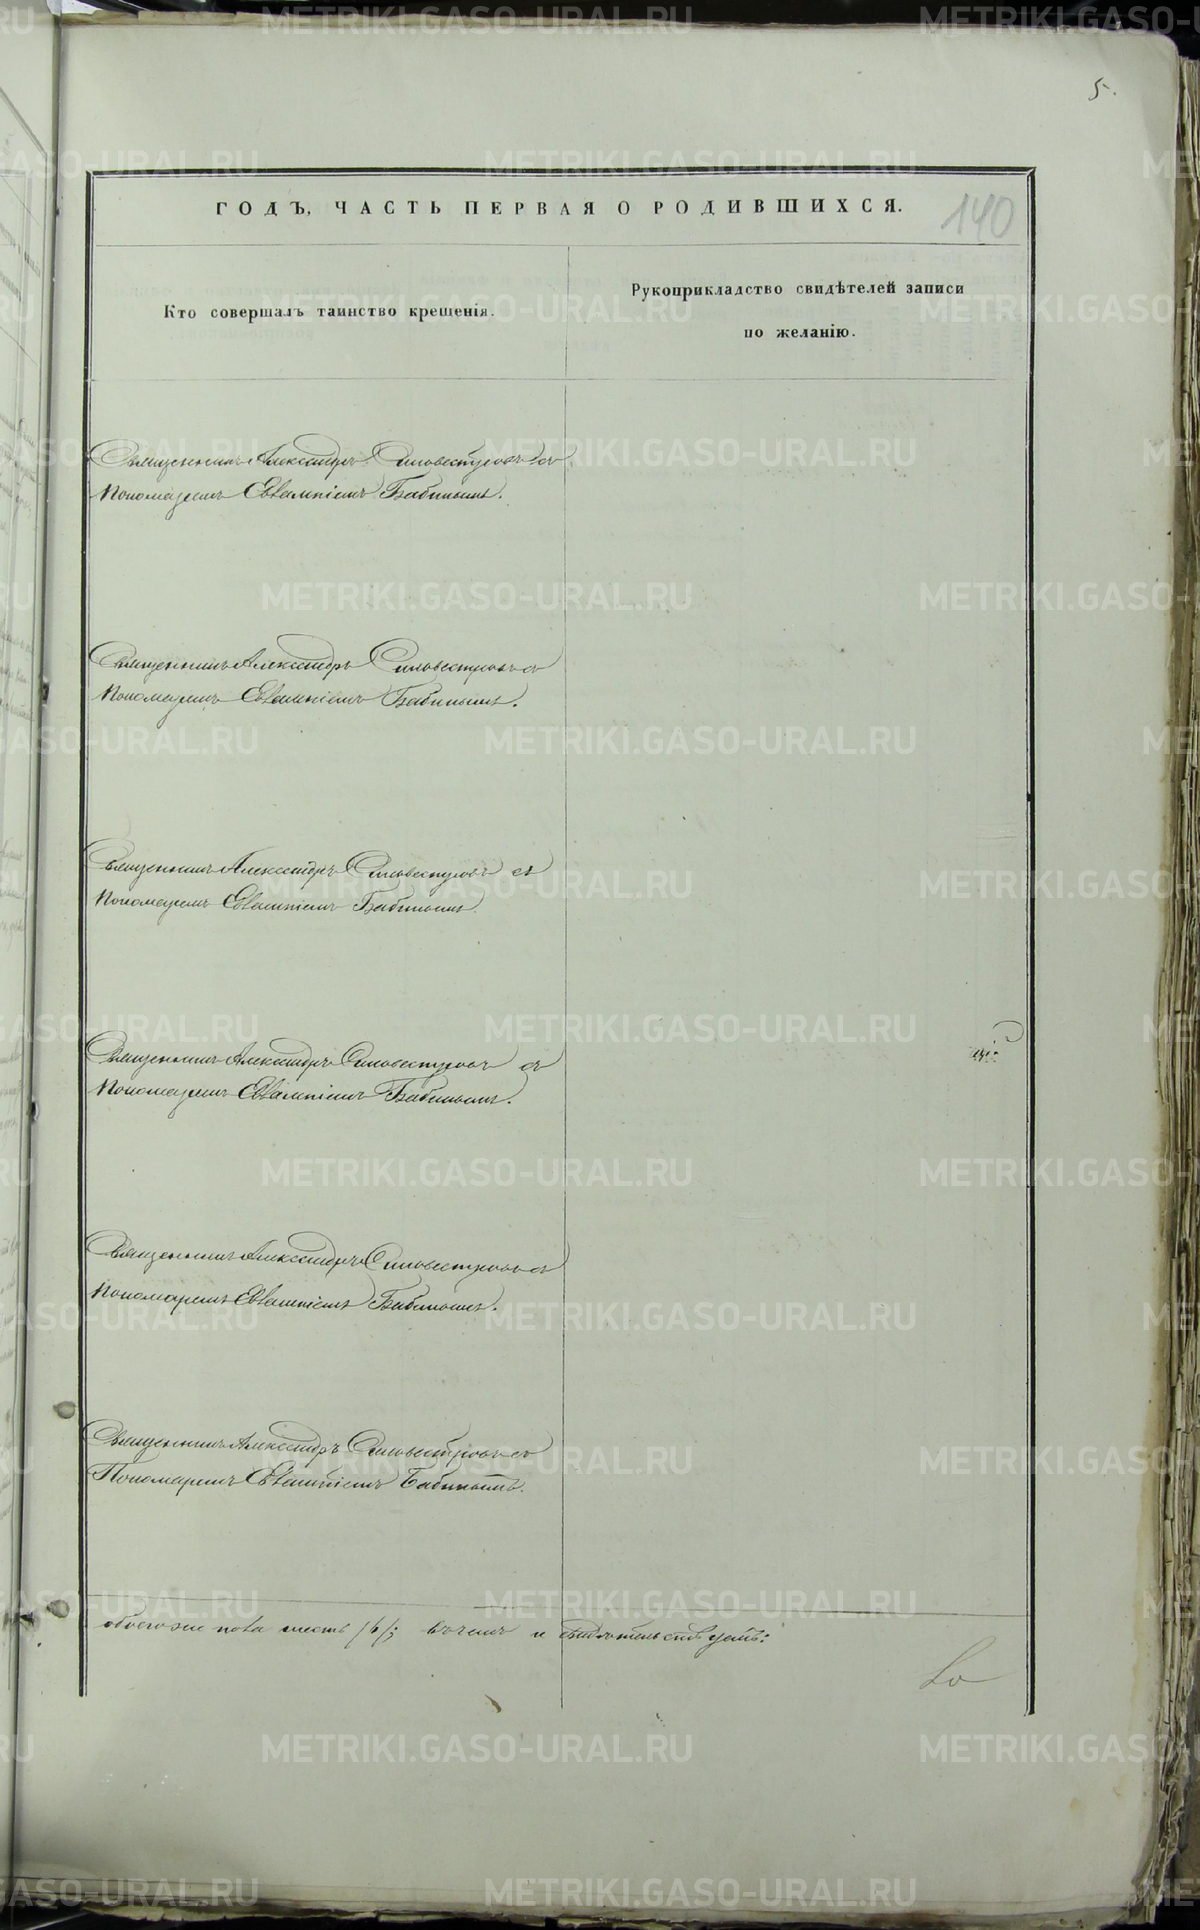 5.
ГОДЪ, ЧАСТЬ ПЕРВАЯ О РОДИВШИХСЯ.
140
Кто совершалъ таинство крещенія.
Рукоприкладство свидѣтелей записи
по желанію.
Священникъ Александръ Сильвестровъ съ
Пономаремъ Евѳампіемъ Бабинымъ.
Священникъ Александръ Сильвестровъ съ
Пономаремъ Евѳампіемъ Бабинымъ.
Священникъ Александръ Сильвестровъ съ
Пономаремъ Евѳампіемъ Бабинымъ.
Священникъ Александръ Сильвестровъ съ
Пономаремъ Евѳампіемъ Бабинымъ.
Священникъ Александръ Сильвестровъ съ
Пономаремъ Евѳампіемъ Бабинымъ.
Священникъ Александръ Сильвестровъ съ
Пономаремъ Евѳампіемъ Бабинымъ.
обоего же пола шесть /6/; въ чемъ и свидѣтельствуемъ:
METRIKI.GASO-URAL.RU